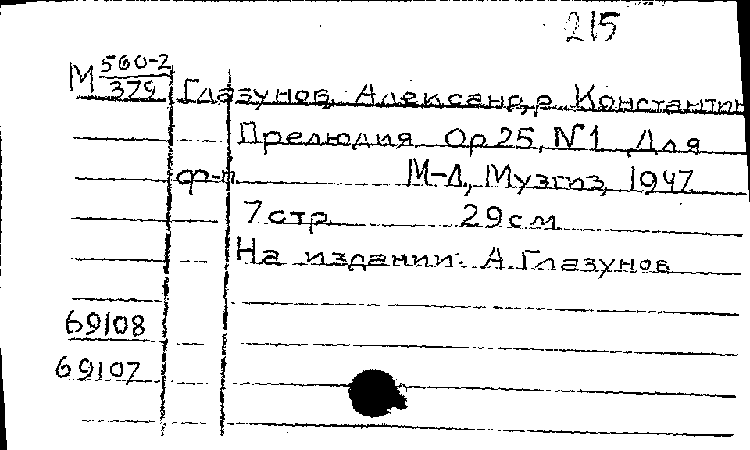 215
М 560-2
379
Глазунов, Александр Константин
Прелюдия Ор 25, №1 Для
ф-п М-Л, Музгиз, 1947
7 стр 29 см
На издании: А. Глазунов
69108
69107